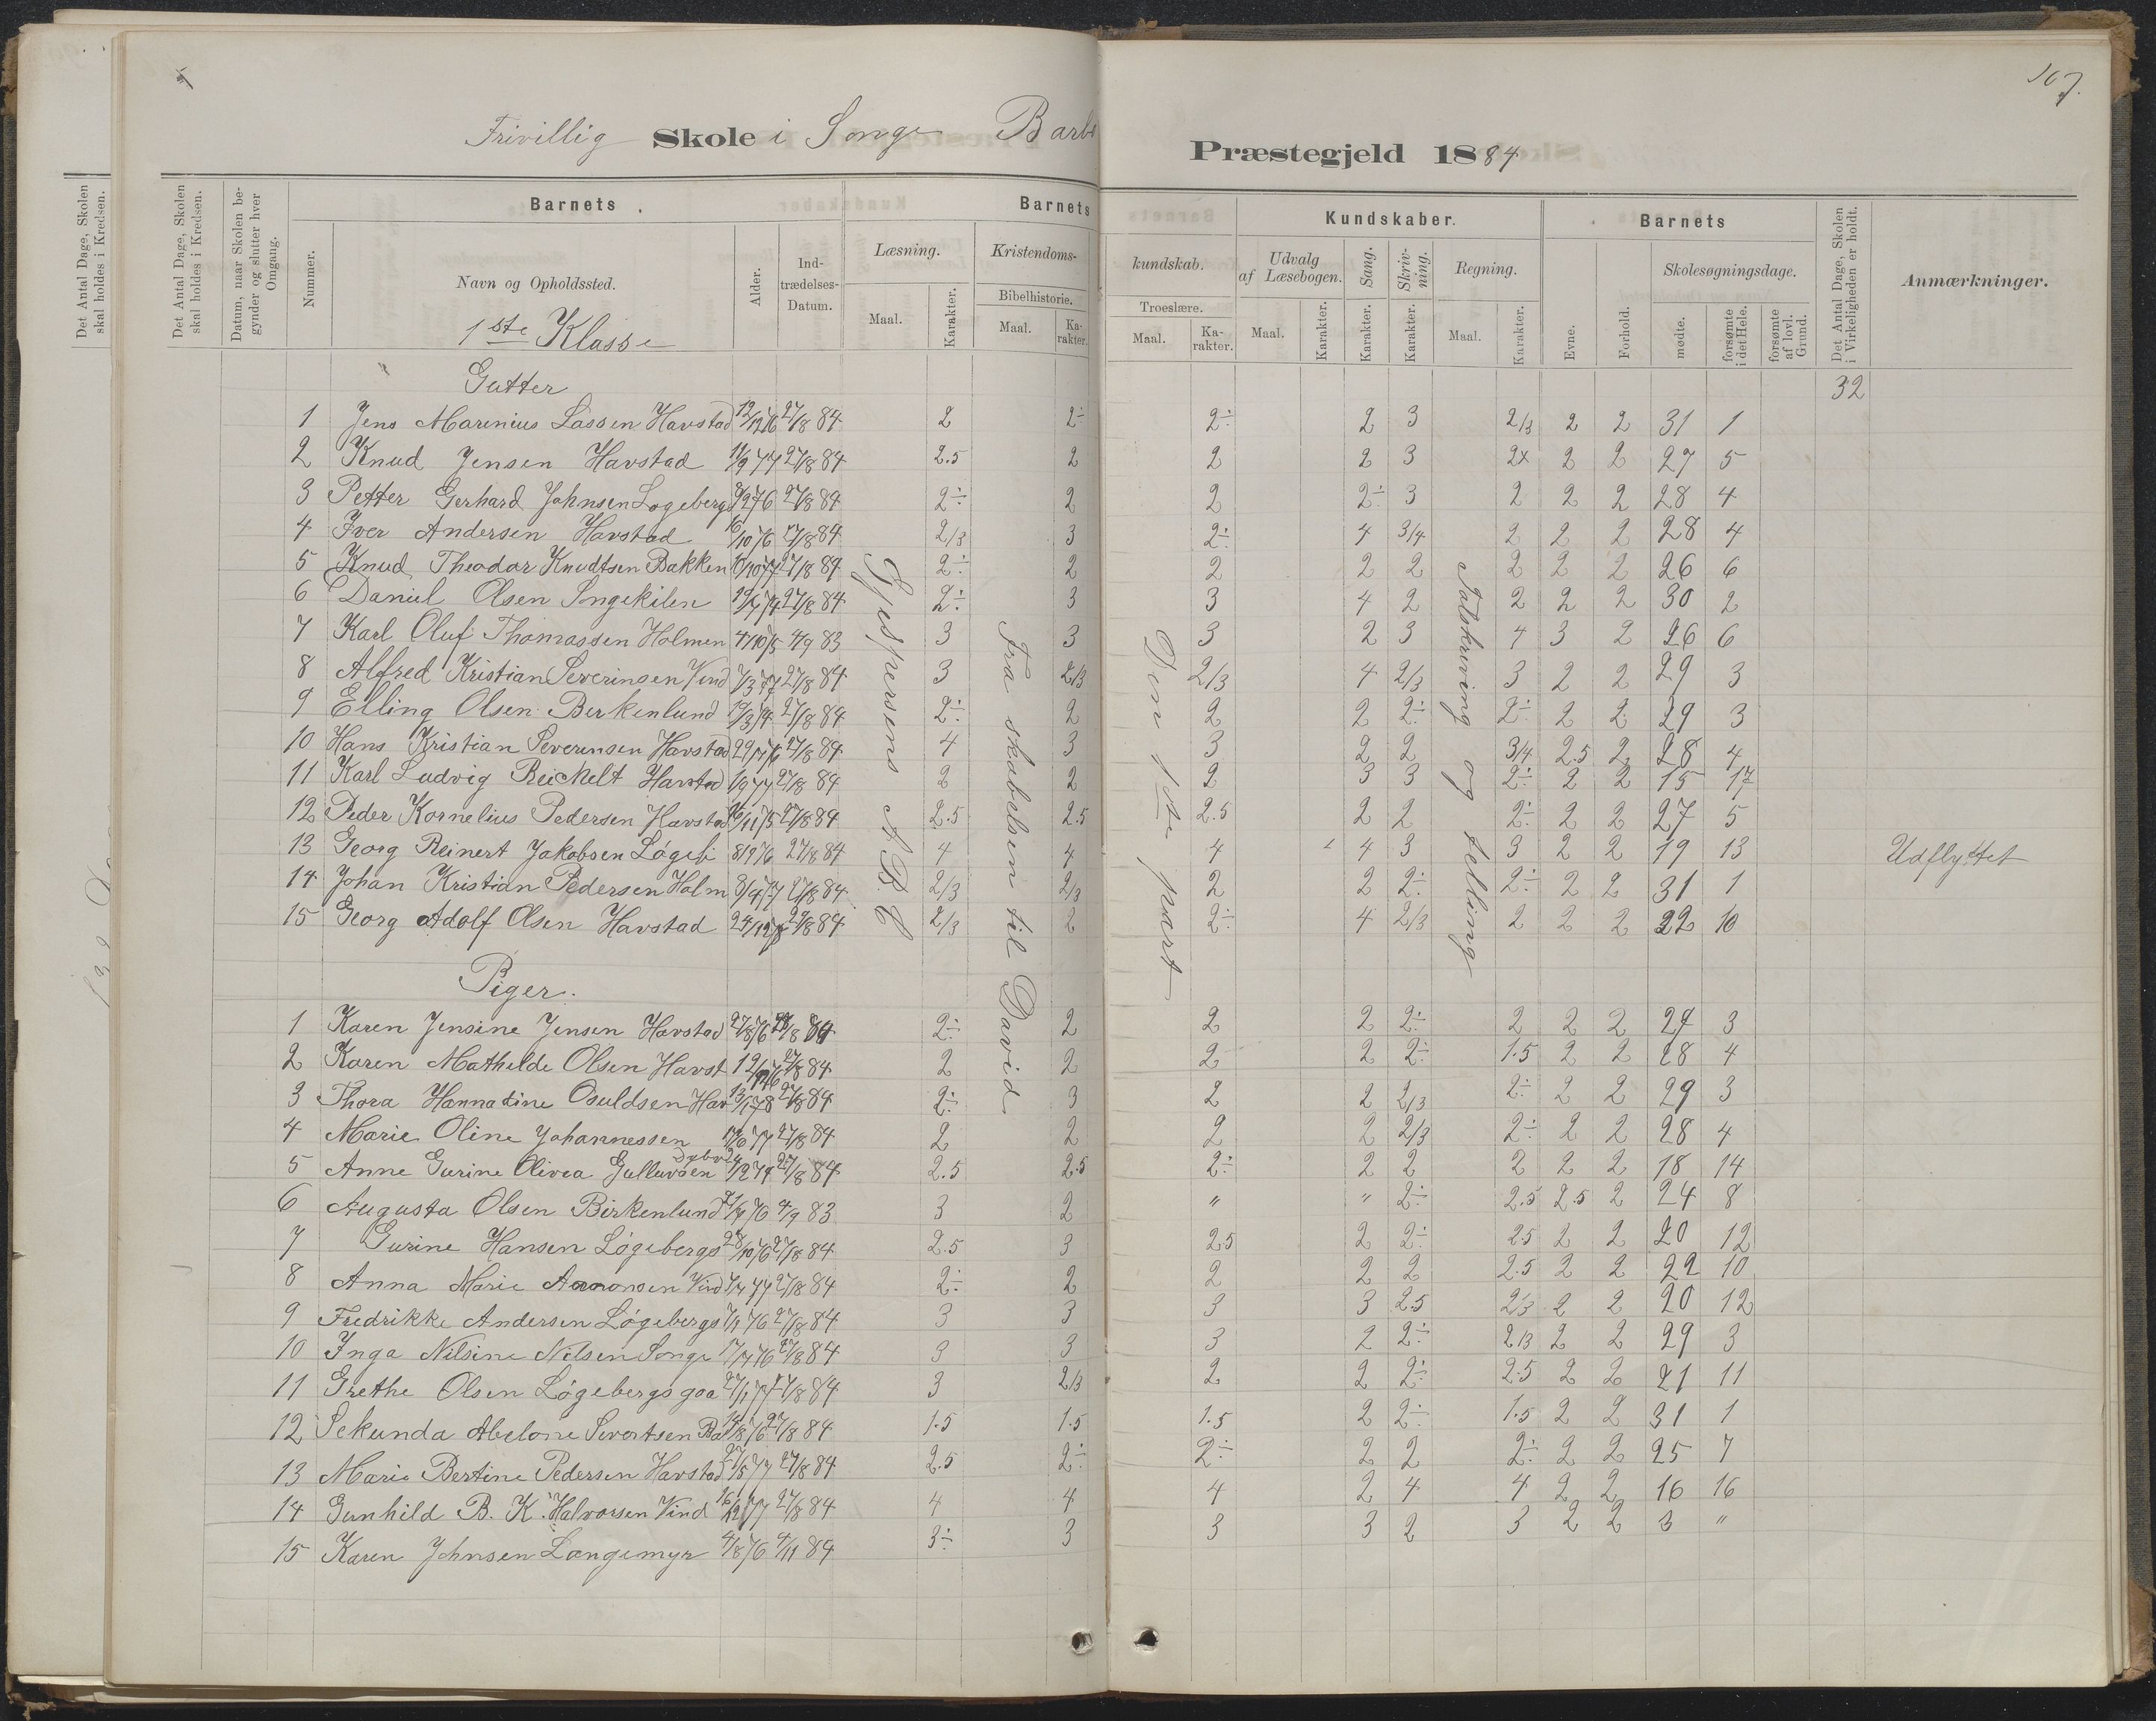 107.
Frivillig Skole i Songe Barbo Præstegjeld 1884
Det Antal Dage, Skolen skal holdes i Kredsen.
Det Antal Dage, Skolen skal holdes i Kredsen.
Datum, naar Skolen begynder og slutter hver Omgang.
Barnets
Nummer.
Navn og Opholdssted.
Alder.
Indtrædelses-Datum.
Barnets Kundskaber.
Læsning.
Maal.
Karakter.
Kristendomskundskab.
Bibelhistorie.
Maal.
Karakter.
Troeslære.
Maal.
Karakter.
Udvalg af Læsebogen.
Maal.
Karakter.
Sang.
Karakter.
Skrivning.
Karakter.
Regning.
Maal.
Karakter.
Barnets
Evne.
Forhold.
Skolesøgningsdage.
mødte.
forsømte i det Hele.
forsømte af lovl. Grund.
Det Antal Dage, Skolen i Virkeligheden er holdt.
Anmærkninger.
1ste Klasse
Gutter 32
1 Jens Marinius Lassen Havstad 12/12 76 27/8 84 2 2÷ 2÷ 2 3 2/3 2 2 31 1
2 Knud Jensen Havstad 11/9 77 27/8 84 2.5 2 2 2 3 2x 2 2 27 5
3 Petter Gerhard Johnsen Logeberg 27/8 84 2÷ 2 2 2÷ 3 2 2 2 28 4
4 Iver Andersen Havstad 16/10 76 27/8 84 2/3 3 2÷ 4 3/4 2 2 2 28 4
5 Knud Theodor Knudtsen Bakken 27/8 84 2÷ 2 2 2 2 2 2 2 26 6
6 Daniel Olsen Songekilen 27/8 84 2÷ 3 3 4 2 2 2 2 30 2
7 Karl Oluf Thomassen Holmen 4/10 75 4/9 83 3 3 3 2 3 4 3 2 26 6
8 Alfred Kristian Severinsen Vind 7/3 77 27/8 84 3 2/3 2/3 4 2/3 3 2 2 29 3
9 Elling Olsen Birkenlund 27/8 84 2÷ 2 2 2 2÷ 2÷ 2 2 29 3
10 Hans Kristian Severinsen Havstad 27/8 84 4 3 3 2 2 3/4 2.5 2 28 4
11 Karl Ludvig Reickelt Havstad 1/9 77 27/8 84 2 2 2 3 3 2÷ 2 2 15 17
12 Peder Kornelius Pedersen Havstad 27/8 84 2.5 2.5 2.5 2 2 2÷ 2 2 27 5
13 Georg Reinert Jakobsen Løgeb 8/9 76 27/8 84 4 4 4 4 3 3 2 2 19 13 Udflyttet
14 Johan Kristian Pedersen Holm 8/4 77 27/8 84 2/3 2/3 2 2 2÷ 2÷ 2 2 31 1
15 Georg Adolf Olsen Havstad 27/8 84 2/3 2 2÷ 4 2/3 2 2 2 22 10
Jespersens A.B.C
Fra skabelsen til David
Den 1ste part
Talskrivning og telling
Piger.
1 Karen Jensine Jensen Havstad 27/8 76 27/8 84 2÷ 2 2 2 2÷ 2 2 2 29 3
2 Karen Mathilde Olsen Havst 27/8 84 2 2 2 2 2÷ 1.5 2 2 28 4
3 Thora Hannadine Osuldsen Hav 13/1 78 27/8 84 2÷ 3 2 2 2/3 2÷ 2 2 29 3
4 Marie Oline Johannessen 27/8 84 2 2 2 2 2/3 2÷ 2 2 28 4
5 Anne Gurine Olivea Gullevsen 27/8 84 2.5 2.5 2÷ 2 2 2 2 2 18 14
6 Augusta Olsen Birkenlund 4/9 83 3 2 " " 2÷ 2.5 2.5 2 24 8
7 Gurine Hansen Løgebergs 28/10 76 27/8 84 2.5 3 2.5 2 2÷ 2.5 2 2 20 12
8 Anna Marie Aanonsen Vind 27/8 84 2÷ 2 2 2 2 2.5 2 2 22 10
9 Fredrikke Andersen Løgebergs 27/8 84 3 3 3 3 2.5 2/3 2 2 20 12
10 Inga Nilsine Nilsen Songe 27/8 84 3 3 3 2 2÷ 2/3 2 2 29 3
11 Grethe Olsen Løgebergsgaa 27/1 77 27/8 84 3 2/3 2 2 2÷ 2.5 2 2 21 11
12 Sekunda Abelone Sivertsen Bak 14/8 76 27/8 84 1.5 1.5 1.5 2 2÷ 1.5 2 2 31 1
13 Marie Bertine Pedersen Havstad 27/5 77 27/8 84 2.5 2÷ 2÷ 2 2 2÷ 2 2 25 7
14 Gunhild B. K. Halvorsen Vind 16/12 77 27/8 84 4 4 4 2 4 4 2 2 16 16
15 Karen Johnsen Langemyr 4/8 76 4/11 84 3÷ 3 3 3 2 3 2 2 3 "